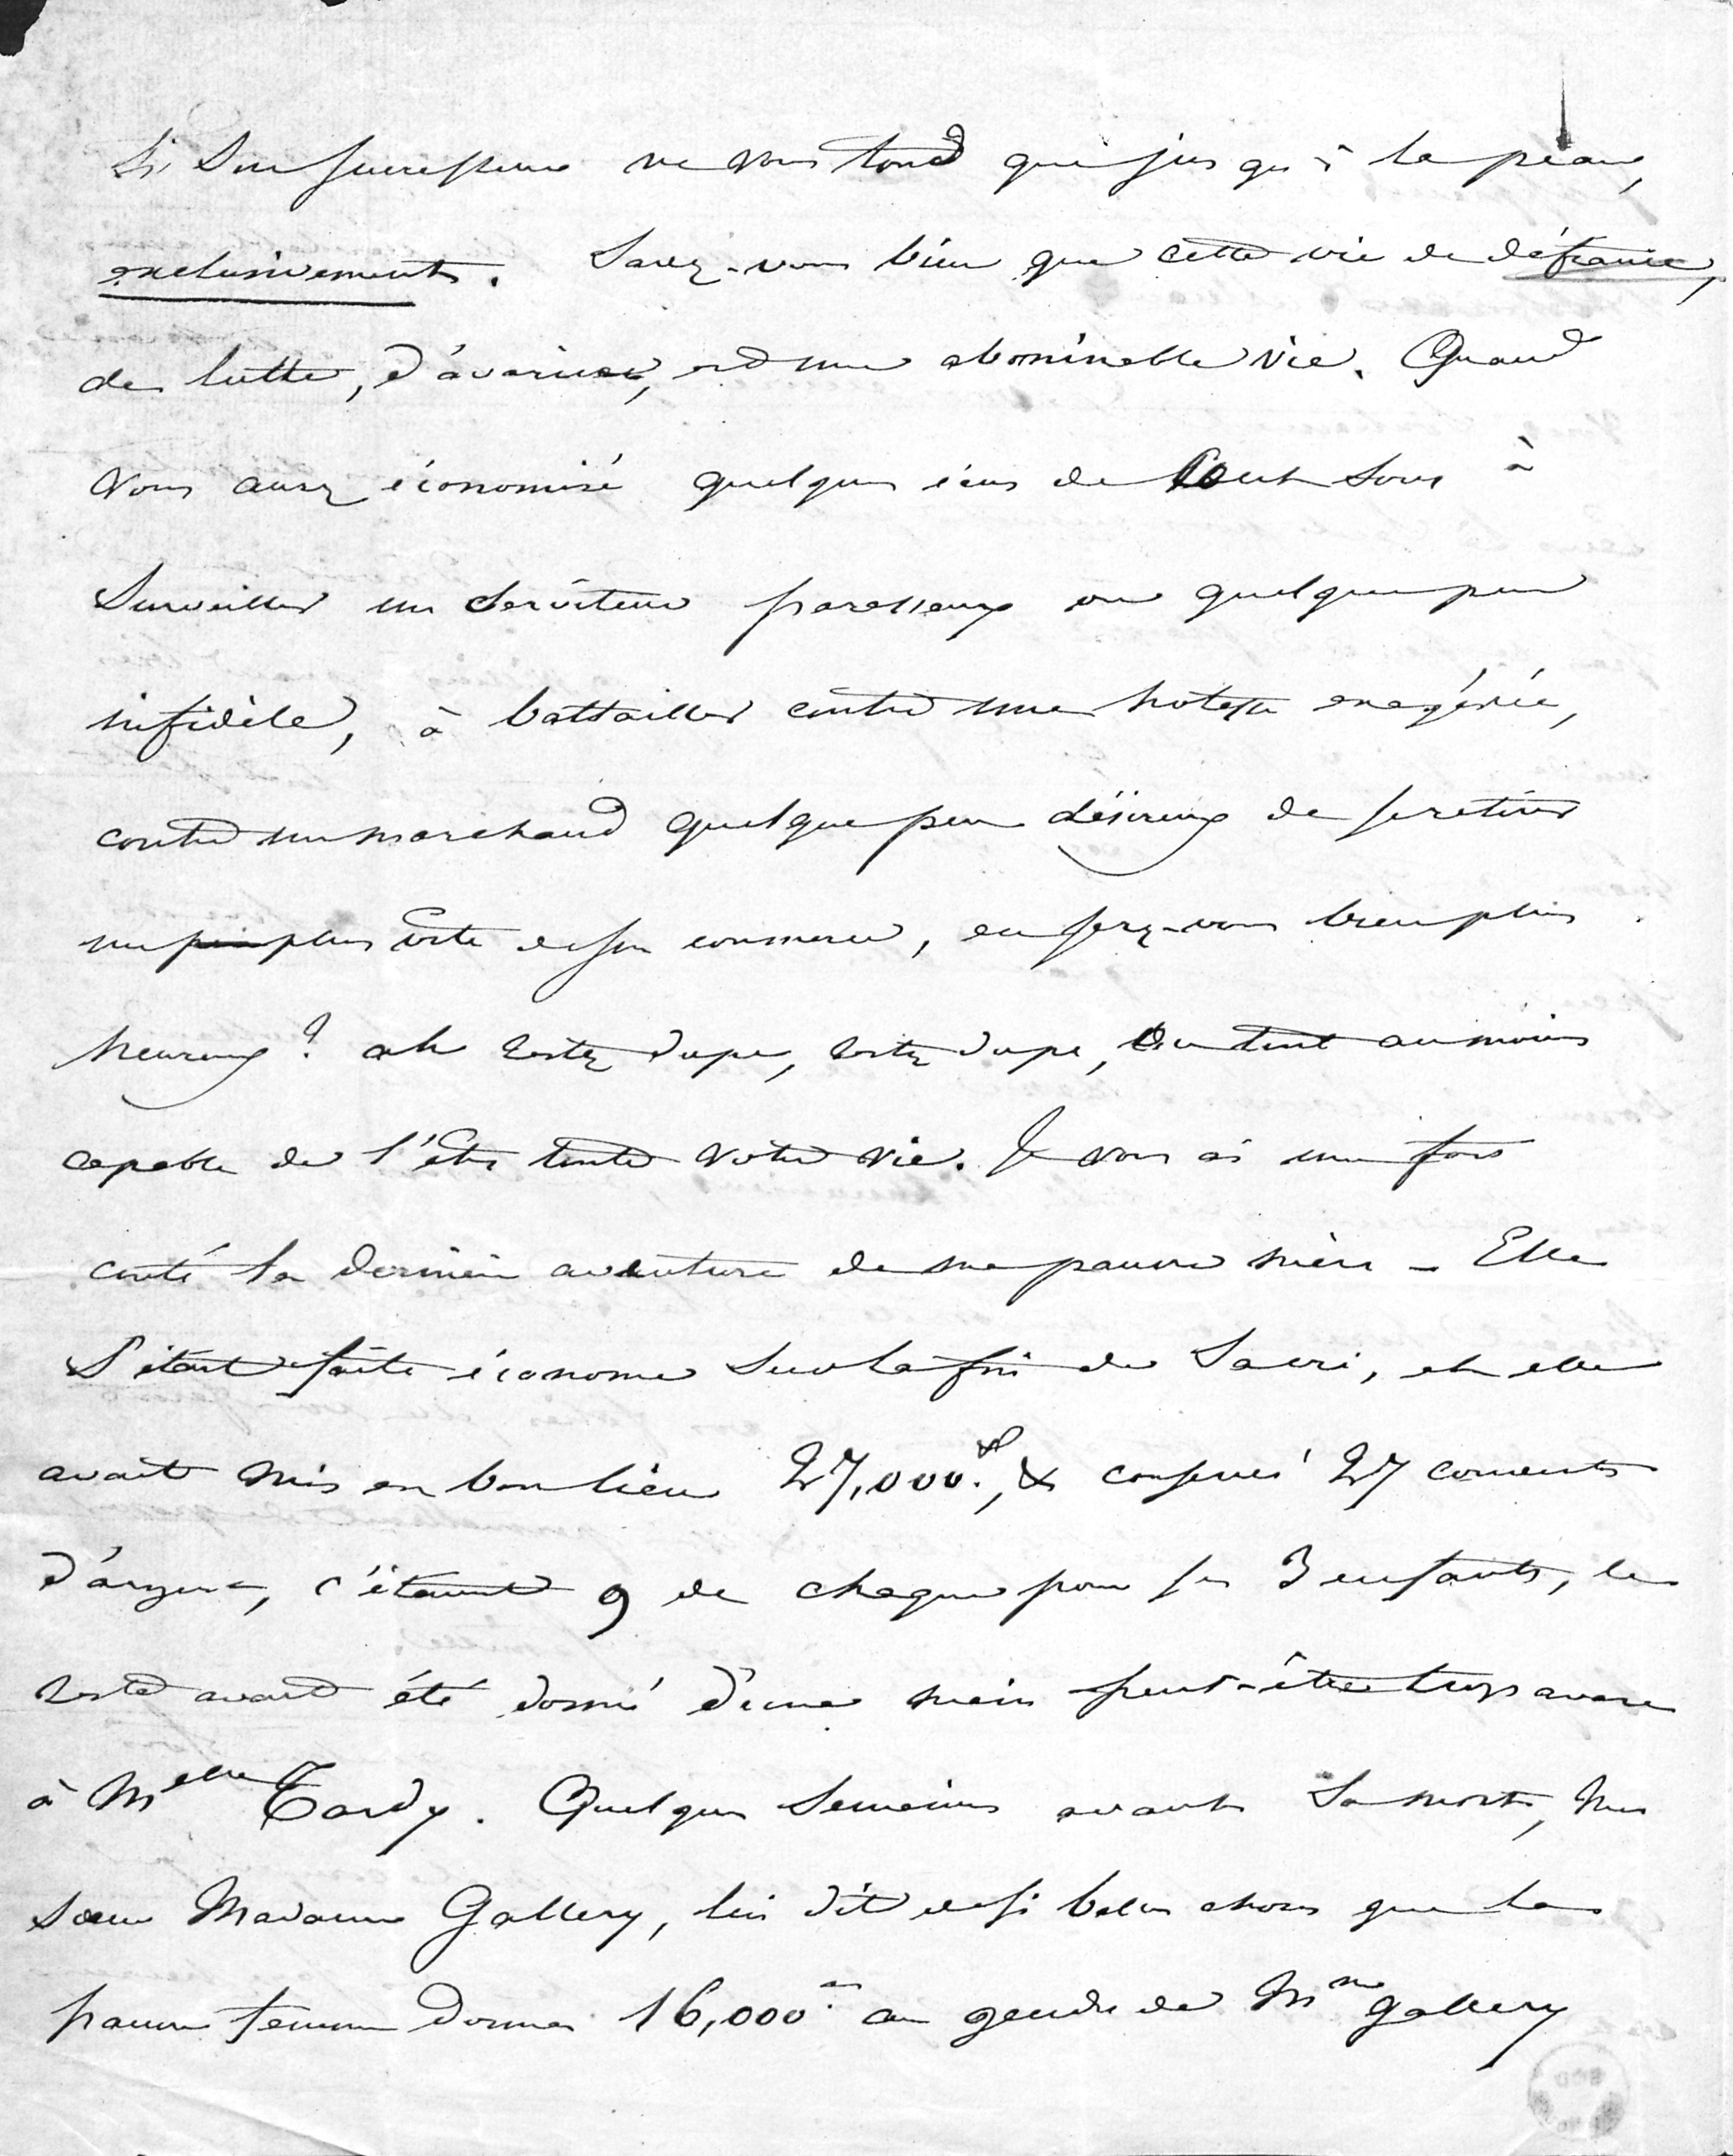 Si son successeur ne vous tond que jusqu'à la peau,
exclusivement. Savez-vous bien que cette vie de défiance,
de lutte, d'avarice, est une abominable vie. Quand
vous aurez économisé quelques écus de cent sous à
surveiller un serviteur paresseux ou quelque peu
infidèle, à battailler contre une note exagérée,
contre un marchand quelque peu désireux de se retirer
un plus vite de son commerce, en serez-vous bien plus
heureux? ah restez dupe, restez dupe, ou tout au moins
capable de l'être toute votre vie. Je vous ai une fois
conté la dernière aventure de ma pauvre mère - Elle
s'était faite économe sur la fin de sa vie, et elle
avait mis en bon lieu 27,000.f, & conservé 27 couverts
d'argent, c'étaient 9 de chaque pour ses 3 enfants, le
reste avait été donné d'une main peut-être trop avare
à Melle Tardy. Quelques semaines avant sa mort, ma
soeur Madame Gallery, lui dit de si belles choses que la
pauvre femme donna 16,000 au gendre de Mme Gallery